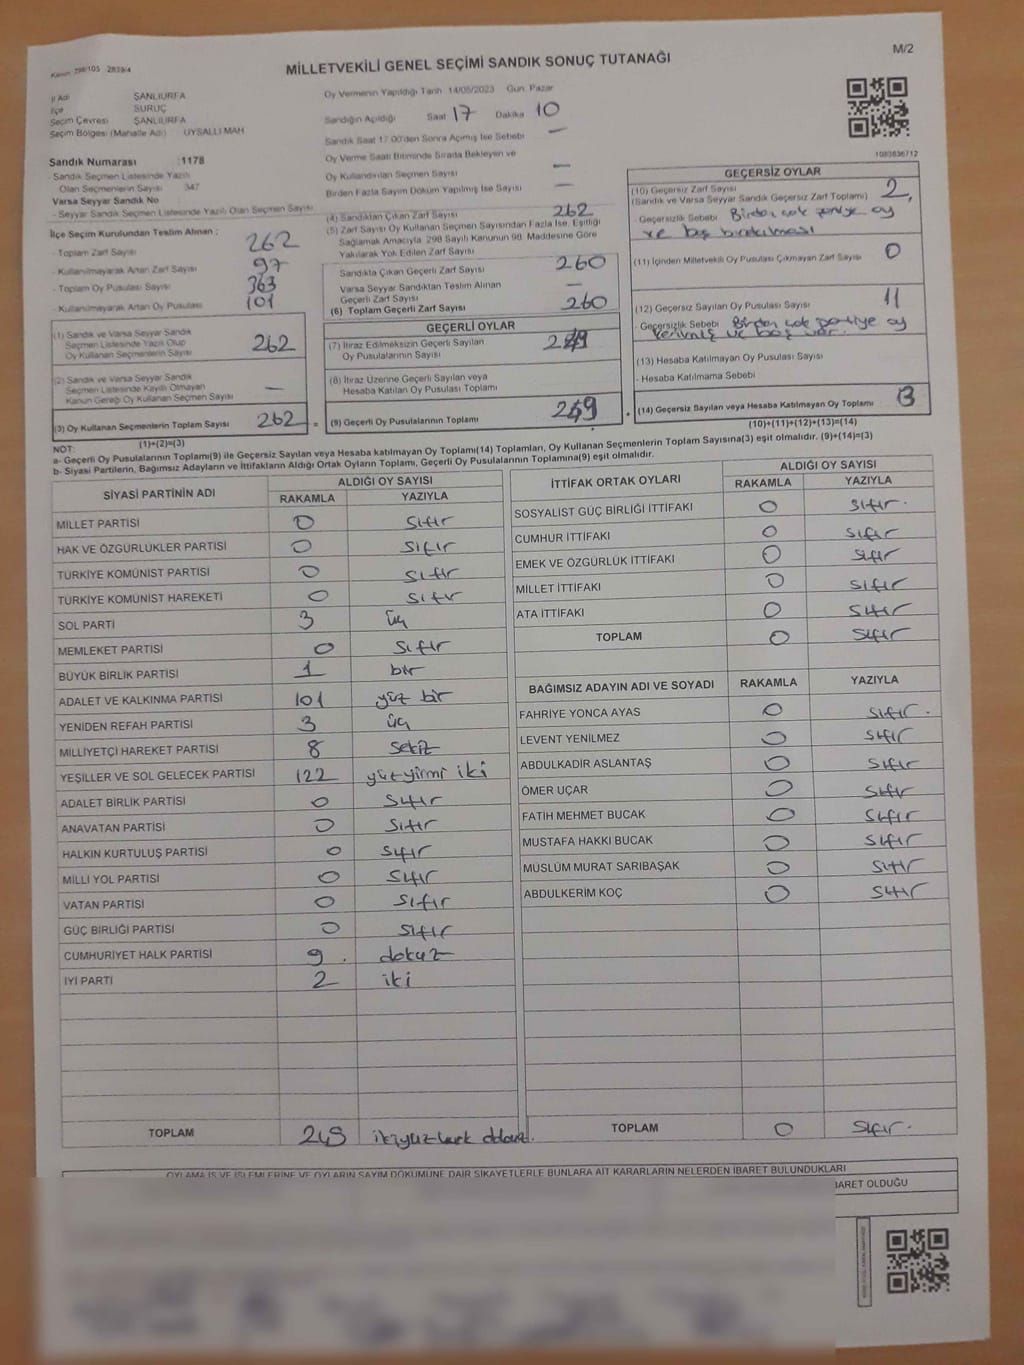 Kanun: 298/105 2839/4
MİLLETVEKİLİ GENEL SEÇİMİ SANDIK SONUÇ TUTANAĞI
M/2
İl Adı ŞANLIURFA
İlçe SURUÇ
Seçim Çevresi ŞANLIURFA
Seçim Bölgesi (Mahalle Adı) UYSALLI MAH
Sandık Numarası :1178
- Sandık Seçmen Listesinde Yazılı
Olan Seçmenlerin Sayısı 347
Varsa Seyyar Sandık No
- Seyyar Sandık Seçmen Listesinde Yazılı Olan Seçmen Sayısı
İlçe Seçim Kurulundan Teslim Alınan ;
- Toplam Zarf Sayısı 262
- Kullanılmayarak Artan Zarf Sayısı 97
- Toplam Oy Pusulası Sayısı 363
- Kullanılmayarak Artan Oy Pusulası 101
(1) Sandık ve Varsa Seyyar Sandık
Seçmen Listesinde Yazılı Olup
Oy Kullanan Seçmenlerin Sayısı 262
(2) Sandık ve Varsa Seyyar Sandık
Seçmen Listesinde Kayıtlı Olmayan
Kanun Gereği Oy Kullanan Seçmen Sayısı —
(3) Oy Kullanan Seçmenlerin Toplam Sayısı 262
(1)+(2)=(3)
Oy Vermenin Yapıldığı Tarih 14/05/2023 Gün: Pazar
Sandığın Açıldığı Saat 17 Dakika 10
Sandık Saat 17:00'den Sonra Açımış İse Sebebi —
Oy Verme Saati Bitiminde Sırada Bekleyen ve
Oy Kullandırılan Seçmen Sayısı —
Birden Fazla Sayım Döküm Yapılmış İse Sayısı —
(4) Sandıktan Çıkan Zarf Sayısı 262
(5) Zarf Sayısı Oy Kullanan Seçmen Sayısından Fazla İse, Eşitliği
Sağlamak Amacıyla, 298 Sayılı Kanunun 98. Maddesine Göre
Yakılarak Yok Edilen Zarf Sayısı
Sandıkta Çıkan Geçerli Zarf Sayısı 260
Varsa Seyyar Sandıktan Teslim Alınan
Geçerli Zarf Sayısı —
(6) Toplam Geçerli Zarf Sayısı 260
GEÇERLİ OYLAR
(7) İtiraz Edilmeksizin Geçerli Sayılan
Oy Pusulalarının Sayısı 249
(8) İtiraz Üzerine Geçerli Sayılan veya
Hesaba Katılan Oy Pusulalarının Toplamı
= (9) Geçerli Oy Pusulalarının Toplamı 249 +
1083636712
GEÇERSİZ OYLAR
(10) Geçersiz Zarf Sayısı 2
(Sandık ve Varsa Seyyar Sandık Geçersiz Zarf Toplamı)
- Geçersizlik Sebebi Birden çok partiye oy
ve boş bırakılması
(11) İçinden Milletvekili Oy Pusulası Çıkmayan Zarf Sayısı 0
(12) Geçersiz Sayılan Oy Pusulası Sayısı 11
- Geçersizlik Sebebi Birden çok partiye oy
verilmiş ve boş var.
(13) Hesaba Katılmayan Oy Pusulası Sayısı
- Hesaba Katılmama Sebebi
(14) Geçersiz Sayılan veya Hesaba Katılmayan Oy Toplamı 13
(10)+(11)+(12)+(13)=(14)
NOT:
a- Geçerli Oy Pusulalarının Toplamı(9) ile Geçersiz Sayılan veya Hesaba katılmayan Oy Toplamı(14) Toplamları, Oy Kullanan Seçmenlerin Toplam Sayısına(3) eşit olmalıdır. (9)+(14)=(3)
b- Siyasi Partilerin, Bağımsız Adayların ve İttifakların Aldığı Ortak Oyların Toplamı, Geçerli Oy Pusulalarının Toplamına(9) eşit olmalıdır.
SİYASİ PARTİNİN ADI ALDIĞI OY SAYISI
RAKAMLA YAZIYLA
MİLLET PARTİSİ 0 sıfır
HAK VE ÖZGÜRLÜKLER PARTİSİ 0 sıfır
TÜRKİYE KOMÜNİST PARTİSİ 0 sıfır
TÜRKİYE KOMÜNİST HAREKETİ 0 sıfır
SOL PARTİ 3 üç
MEMLEKET PARTİSİ 0 sıfır
BÜYÜK BİRLİK PARTİSİ 1 bir
ADALET VE KALKINMA PARTİSİ 101 yüz bir
YENİDEN REFAH PARTİSİ 3 üç
MİLLİYETÇİ HAREKET PARTİSİ 8 sekiz
YEŞİLLER VE SOL GELECEK PARTİSİ 122 yüzyirmi iki
ADALET BİRLİK PARTİSİ 0 sıfır
ANAVATAN PARTİSİ 0 sıfır
HALKIN KURTULUŞ PARTİSİ 0 sıfır
MİLLİ YOL PARTİSİ 0 sıfır
VATAN PARTİSİ 0 sıfır
GÜÇ BİRLİĞİ PARTİSİ 0 sıfır
CUMHURİYET HALK PARTİSİ 9 . dokuz
İYİ PARTİ 2 iki
TOPLAM 249
İTTİFAK ORTAK OYLARI ALDIĞI OY SAYISI
RAKAMLA YAZIYLA
SOSYALİST GÜÇ BİRLİĞİ İTTİFAKI 0 sıfır.
CUMHUR İTTİFAKI 0 sıfır
EMEK VE ÖZGÜRLÜK İTTİFAKI 0 sıfır
MİLLET İTTİFAKI 0 sıfır
ATA İTTİFAKI 0 sıfır
TOPLAM 0 sıfır
BAĞIMSIZ ADAYIN ADI VE SOYADI RAKAMLA YAZIYLA
FAHRİYE YONCA AYAS 0 sıfır.
LEVENT YENİLMEZ 0 sıfır
ABDULKADİR ASLANTAŞ 0 sıfır
ÖMER UÇAR 0 sıfır
FATİH MEHMET BUCAK 0 sıfır
MUSTAFA HAKKI BUCAK 0 sıfır
MÜSLÜM MURAT SARIBAŞAK 0 sıfır
ABDULKERİM KOÇ 0 sıfır
TOPLAM 0 sıfır.
OYLAMA İŞ VE İŞLEMLERİNE VE OYLARIN SAYIM DÖKÜMÜNE DAİR ŞİKAYETLERLE BUNLARA AİT KARARLARIN NELERDEN İBARET BULUNDUKLARI
BARET OLDUĞU